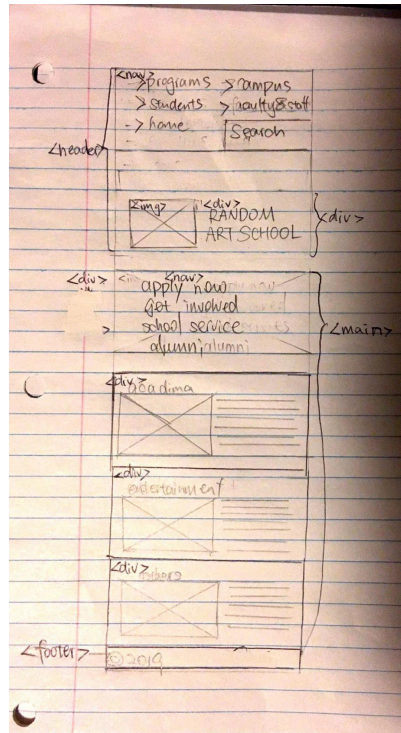 <nav>
> programs > campus
> students > faculty & staff
-> home Search
<header>
<img> <div>
RANDOM
ART SCHOOL
<div>
<div> <nav>
apply now
get involved
school service
alumni alumni
<main>
<div>
<div>
entertainment
<div>
<footer>
© 2019